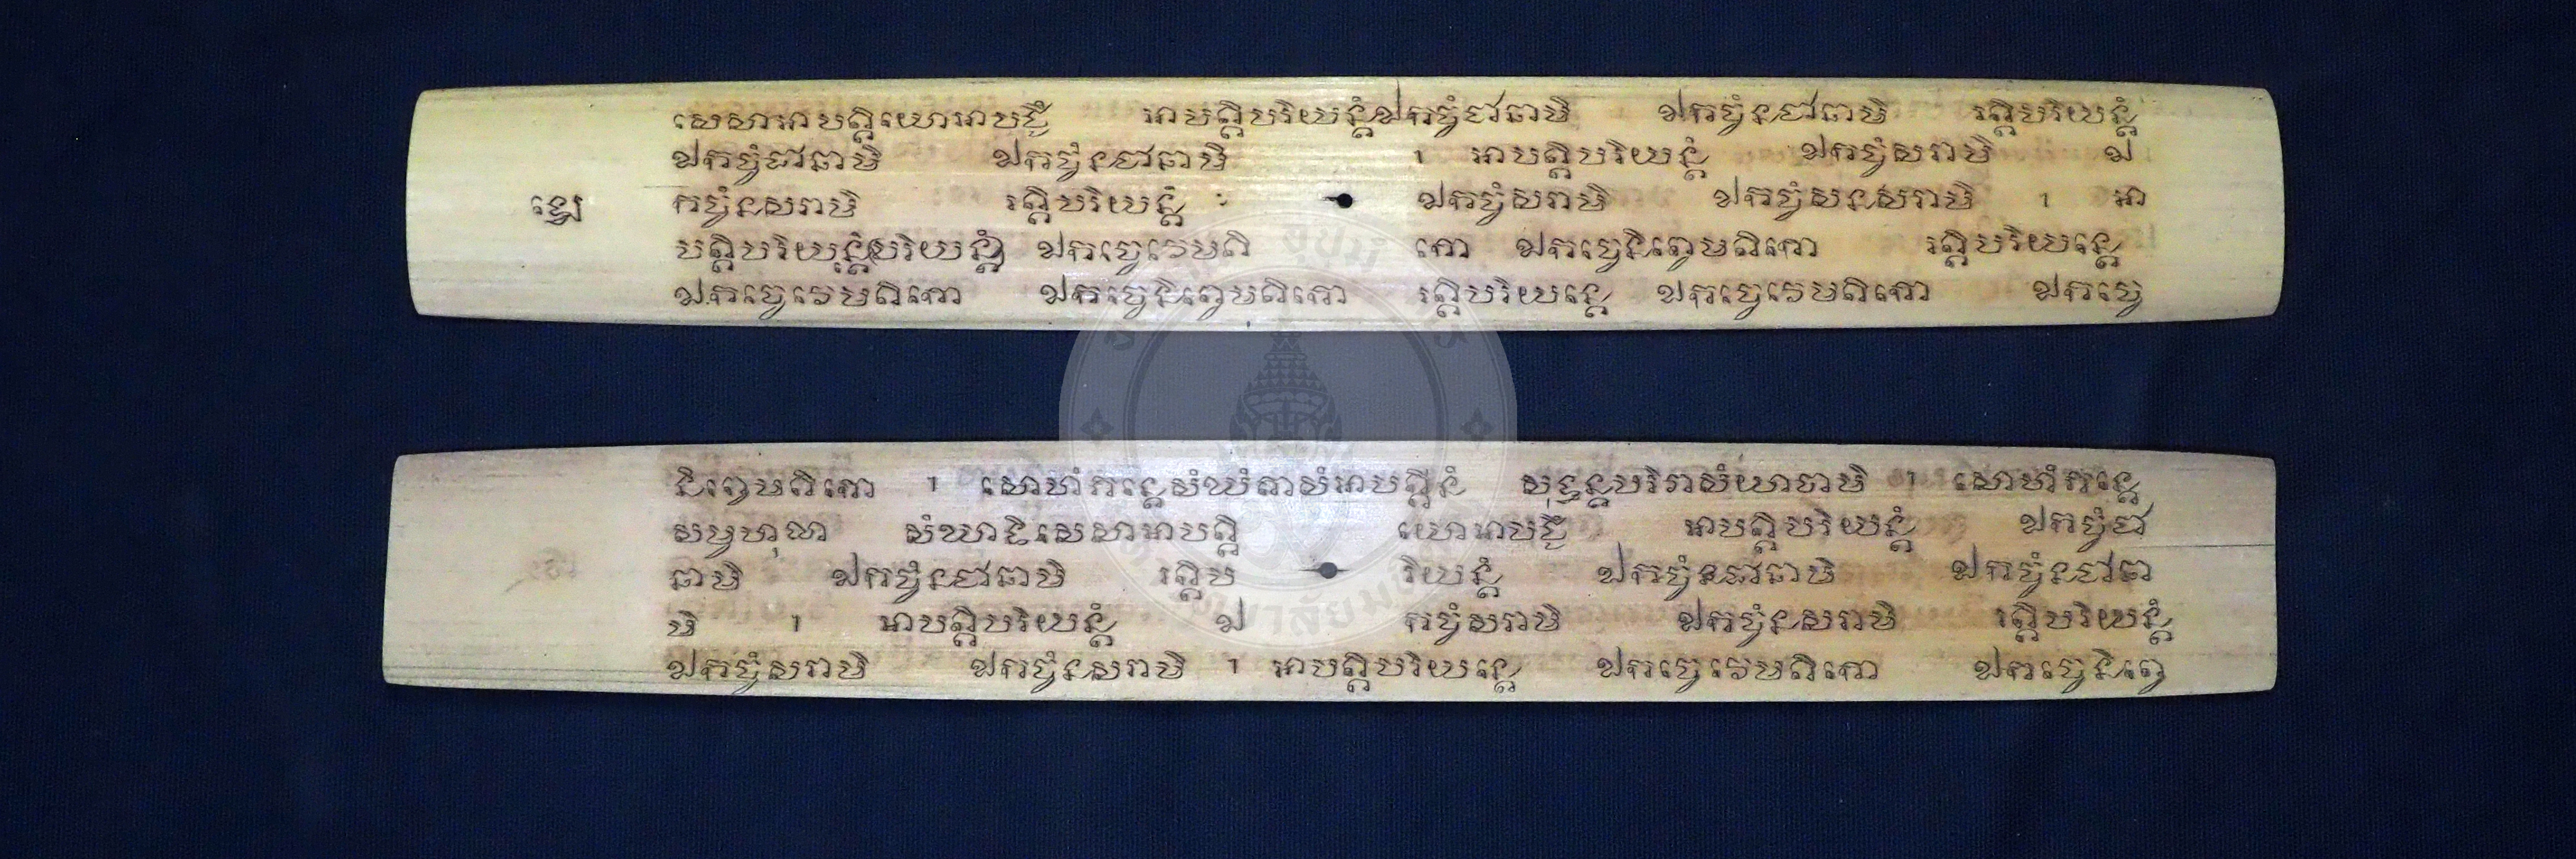 សេសាអាបត្តិយោអាបជ្ជឹ អាបត្តិបរិយន្តំឯកច្ចំជានាមិ ឯកច្ចំនជានាមិ រត្តិបរិយន្តំ
ឯកច្ចំជានាមិ ឯកច្ចំនជានាមិ ។ អាបត្តិបរិយន្តំ ឯកច្ចំសរាមិ ឯ
កច្ចំនសរាមិ រត្តិបរិយន្តំ ឯកច្ចំសរាមិ ឯកច្ចំសនសរាមិ ។ អា
បត្តិ ឯកច្ចេវេមតិ កោ ឯកច្ចេនិព្វេមតិកោ រត្តិបរិយន្តេ
ឯកច្ចេវេមតិកោ ឯកច្ចេនិព្វេមតិកោ រត្តិបរិយន្តេ ឯកច្ចេវេមតិកោ ឯកច្ចេ
និព្វេមតិកោ ។ សោហំភន្តេសំឃំតាសំអាបត្តីនំ សុទ្ធន្តបរិវាសំយាចាមិ ។ សោហំភន្តេ
សម្ពហុលា សំឃាទិសេសាអាបត្តិ យោអាបជ្ជឹ អាបត្តិបរិយន្តំ ឯកច្ចំជា
នាមិ ឯកច្ចំនជានាមិ រត្តិប រិយន្តំ ឯកច្ចំនជានាមិ ឯកច្ចំនជានា
មិ ។ អាបត្តិបរិយន្តំ ឯ កច្ចំសរាមិ ឯកច្ចំនសរាមិ រត្តិបរិយន្តំ
ឯកច្ចំសរាមិ ឯកច្ចំនសរាមិ ។ អាបត្តិបរិយន្តេ ឯកច្ចេវេមតិកោ ឯកច្ចេនិព្វេ